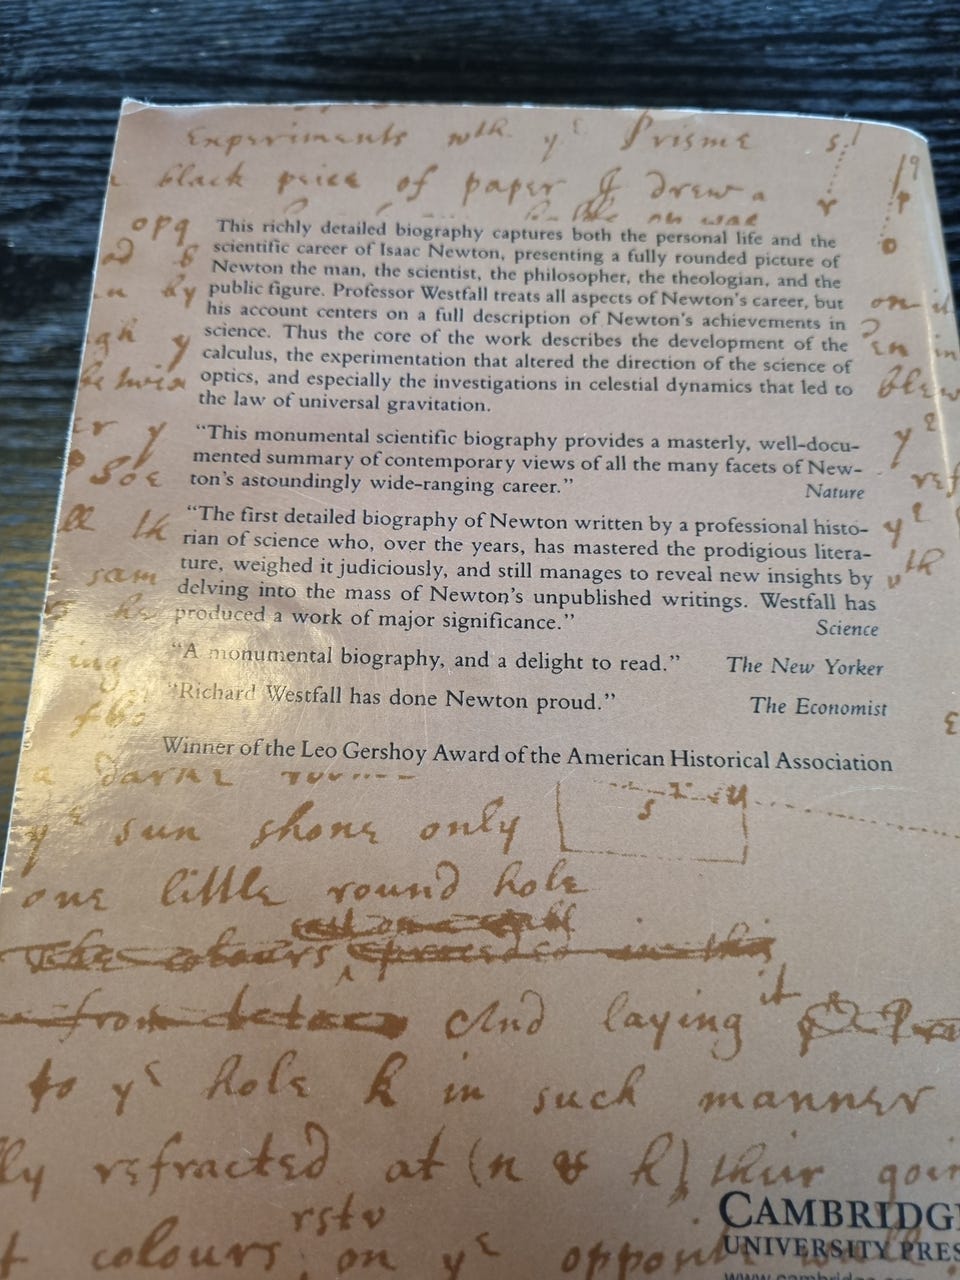 Experiments wth. ye Prisme
black peice of paper I drew a
This richly detailed biography captures both the personal life and the
scientific career of Isaac Newton, presenting a fully rounded picture of
Newton the man, the scientist, the philosopher, the theologian, and the
public figure. Professor Westfall treats all aspects of Newton's career, but
his account centers on a full description of Newton's achievements in
science. Thus the core of the work describes the development of the
calculus, the experimentation that altered the direction of the science of
optics, and especially the investigations in celestial dynamics that led to
the law of universal gravitation.
"This monumental scientific biography provides a masterly, well-docu-
mented summary of contemporary views of all the many facets of New-
ton's astoundingly wide-ranging career."
Nature
"The first detailed biography of Newton written by a professional histo-
rian of science who, over the years, has mastered the prodigious litera-
ture, weighed it judiciously, and still manages to reveal new insights by
delving into the mass of Newton's unpublished writings. Westfall has
produced a work of major significance."
Science
"A monumental biography, and a delight to read." The New Yorker
"Richard Westfall has done Newton proud." The Economist
Winner of the Leo Gershoy Award of the American Historical Association
ye sun shone only
one little round hole
The colours in this
from And laying it
to ye hole k in such manner
ly refracted at (n & k) their goin
rstv
colours on ye opposite wall
CAMBRIDGE
UNIVERSITY PRES